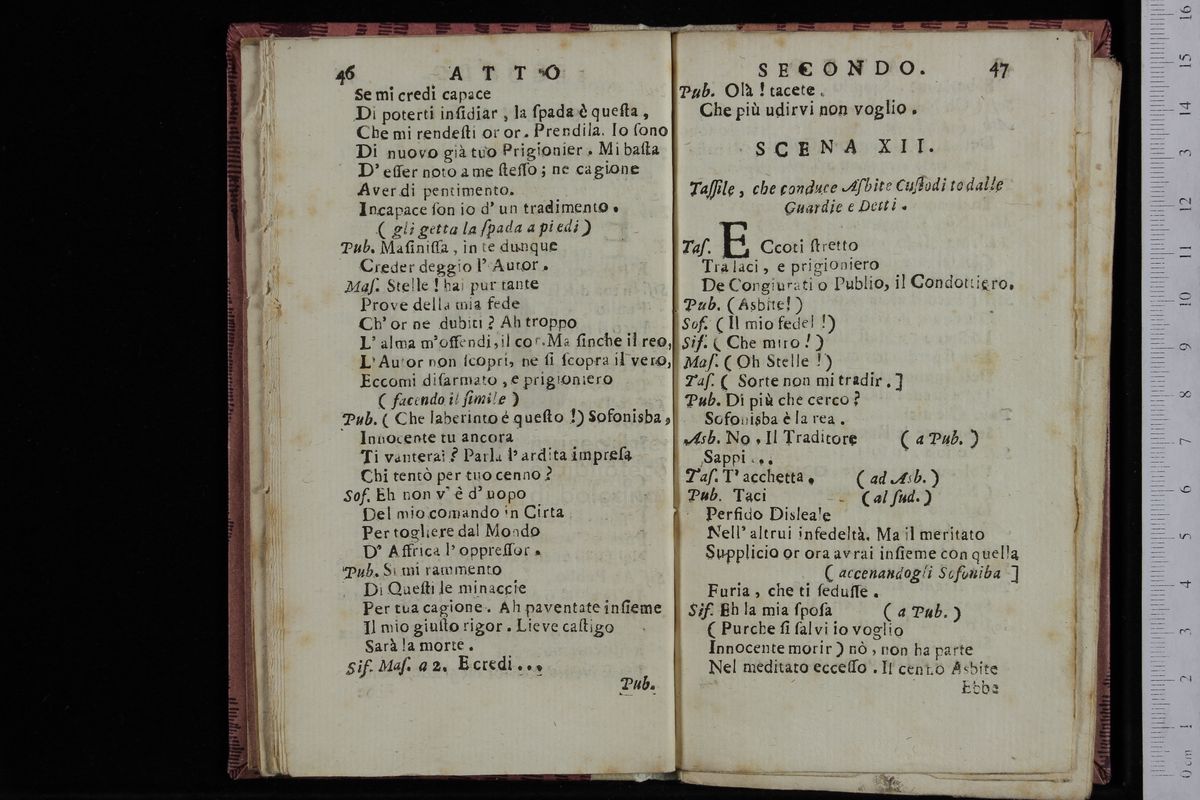 46 ATTO
Se mi credi capace
Di poterti inſidiar, la ſpada è queſta,
Che mi rendeſti or or. Prendila. Io ſono
Di nuovo già tuo Prigionier. Mi baſta
D' eſſer noto a me ſteſſo; ne cagione
Aver di pentimento.
Incapace ſon io d' un tradimento.
( gli getta la ſpada a piedi )
Pub. Maſiniſſa, in te dunque
Creder deggio l' Autor.
Maſ. Stelle! hai pur tante
Prove della mia fede
Ch' or ne dubiti? Ah troppo
L' alma m'offendi, il cor. Ma finche il reo,
L' Autor non ſcopri, ne ſi ſcopra il vero,
Eccomi diſarmato, e prigioniero
( facendo il ſimile )
Pub. ( Che laberinto é queſto!) Sofonisba,
Innocente tu ancora
Ti vanterai? Parla l' ardita impreſa
Chi tentò per tuo cenno?
Soſ. Eh non v' è d' uopo
Del mio comando in Cirta
Per togliere dal Mondo
D' Affrica l' oppreſſor.
Pub. Si mi rammento
Di Queſti le minaccie
Per tua cagione. Ah paventate inſieme
Il mio giuſto rigor. Lieve caſtigo
Sarà la morte.
Sif. Maſ. a 2. E credi...
Pub.
SECONDO. 47
Pub. Olà! tacete.
Che più udirvi non voglio.
SCENA XII.
Taſſile, che conduce Aſbite Cuſtodito dalle
Guardie e Detti.
Taſ. ECcoti ſtretto
Tra laci, e prigioniero
De Congiurati o Publio, il Condottiero.
Pub. ( Asbite!)
Soſ. ( Il mio fedel!)
Sif. ( Che miro!)
Maſ. ( Oh Stelle!)
Taſ. ( Sorte non mi tradir.]
Pub. Di più che cerco?
Sofonisba è la rea.
Asb. No, Il Traditore ( a Pub. )
Sappi...
Taſ. T' acchetta. ( ad Asb. )
Pub. Taci ( al ſud. )
Perfido Disleale
Nell' altrui infedeltà. Ma il meritato
Supplicio or ora avrai inſieme con quella
( accenandogli Sofoniba ]
Furia, che ti ſeduſſe.
Sif. Eh la mia ſpoſa ( a Pub. )
( Purche ſi ſalvi io voglio
Innocente morir) nò, non ha parte
Nel meditato ecceſſo. Il cenno Asbite
Ebbe